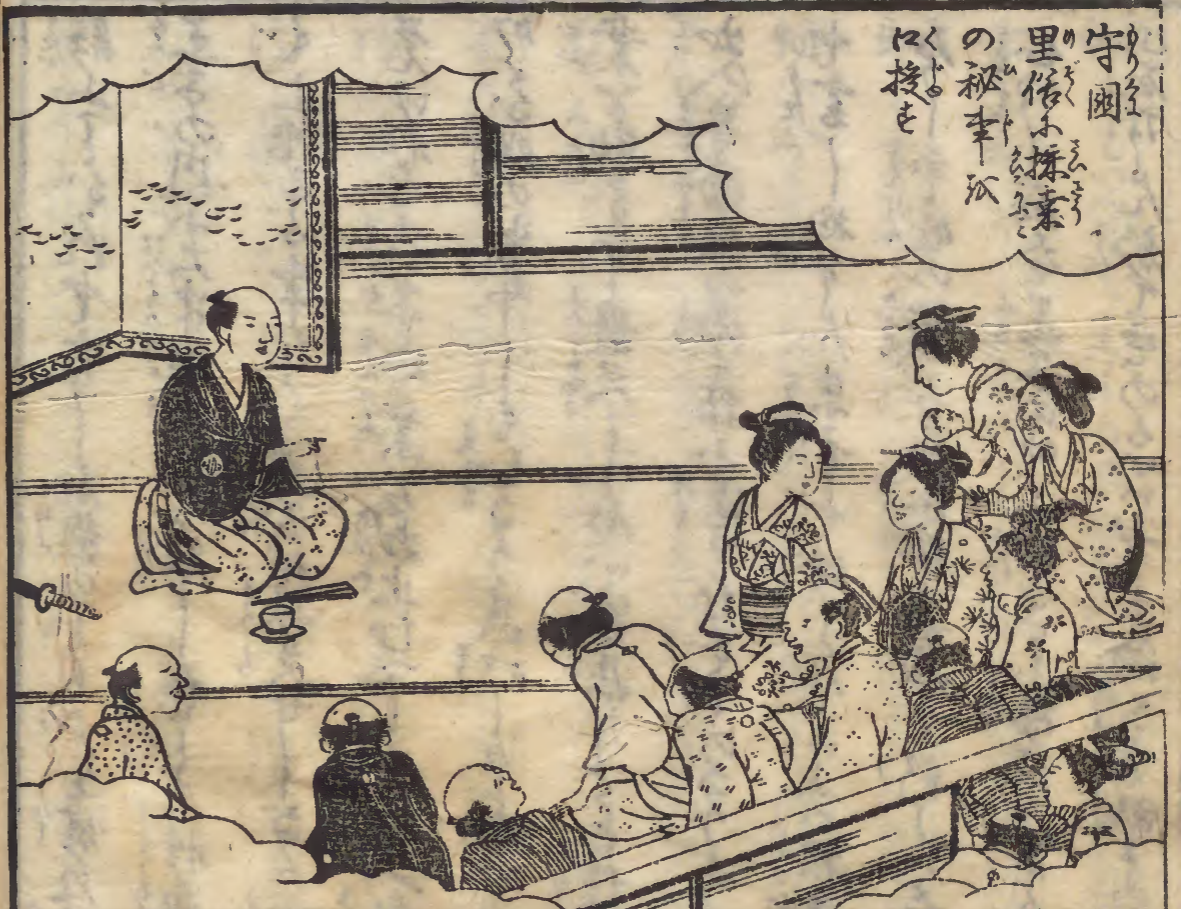 守國
里俗に採桑
の秘事を
口授す